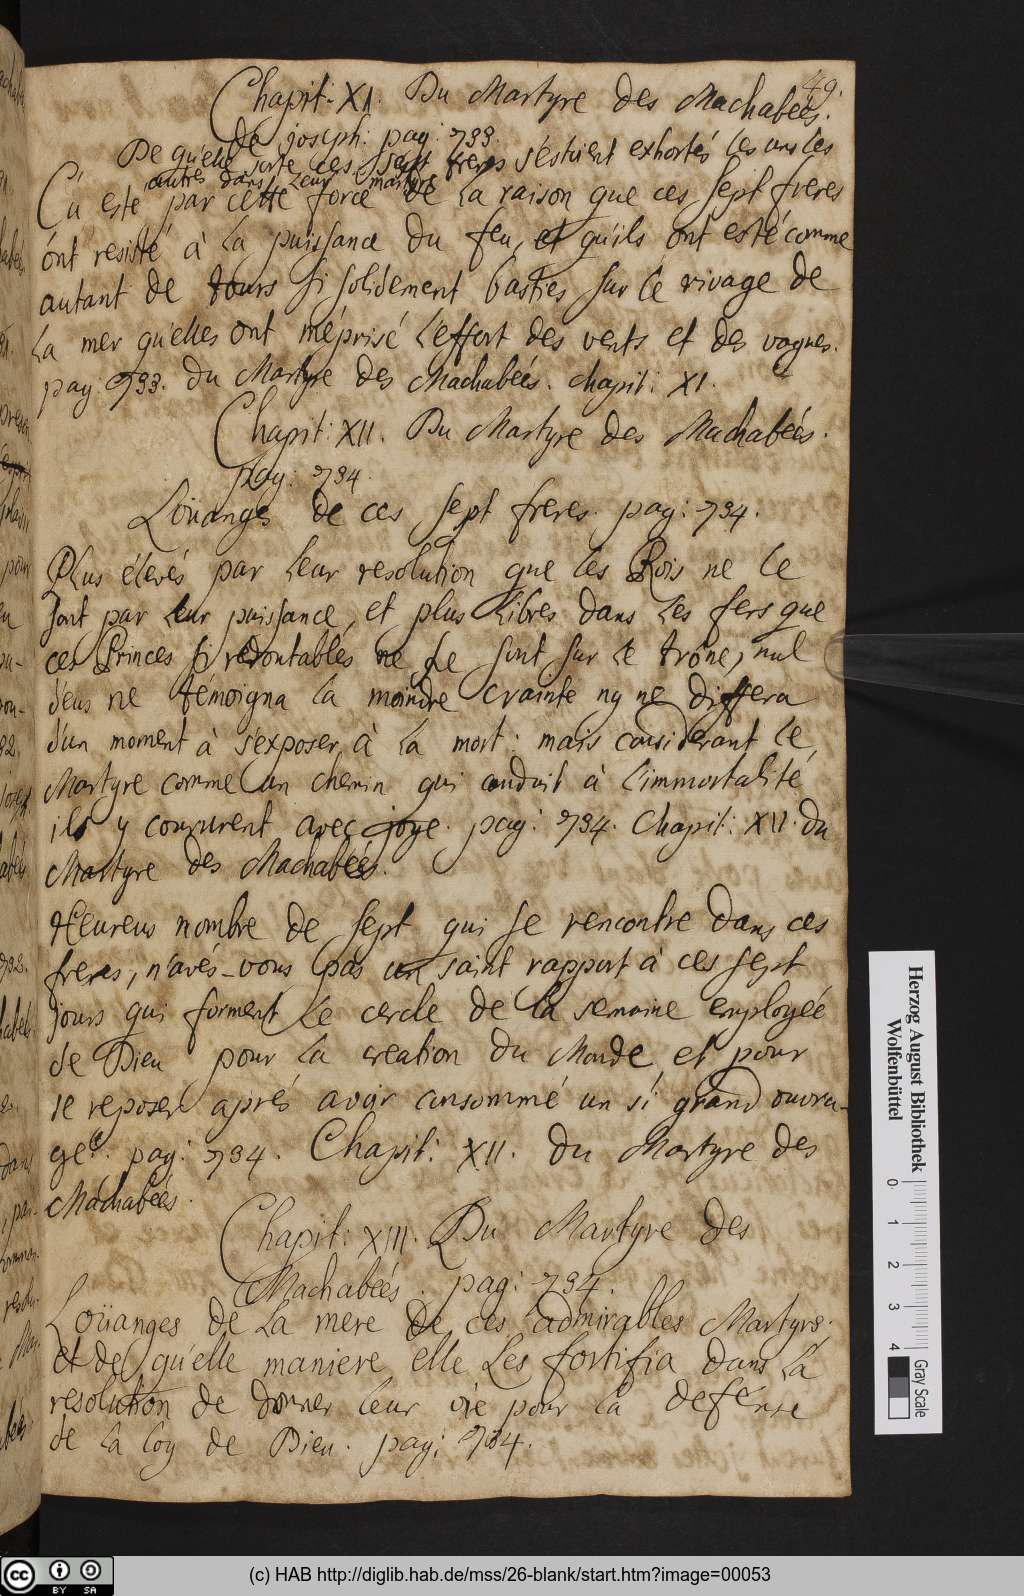 49.
Chapit: XI. Du Martyre des Machabées.
de joseph: pag: 733.
De qu'elle sorte ces sept freres s'estoient exhortés les uns les
autres dans leur martyre
C'a esté par cette force de La raison que ces sept freres
ónt resisté à La puissance du feu, et qu'ils ont esté comme
autant de tours si solidement basties sur le rivage de
La mer qu'elles ont méprisé L'effort des vents et des vagues.
pag: 733. du Martyre des Machabées. chapit: XI.
Chapit: XII. Du Martyre des Machabées.
pag: 734.
Loüanges de ces sept freres. pag: 734.
Plus élevés par leur resolution que les Rois ne le
sont par leur puissance, et plus libres dans les fers que
ces Princes si redoutables ne le sont sur le trône, nul
d'eus ne témoigna la moindre crainte ny ne differa
d'un moment à s'exposer à La mort: mais considerant le
Martyre comme un chemin qui conduit à l'immortalité
ils y coururent avec joye. pag: 734. Chapit: XII. du
Martyre des Machabées.
Heureus nombre de sept qui se rencontre dans ces
freres, n'avés-vous pas un saint rapport à ces sept
jours qui forment Le cercle de la semaine employée
de Dieu pour la creation du Monde, et pour
se reposer aprés avoir consommé un si grand ouvra-
ge. pag: 734. Chapit: XII. du Martyre des
Machabées.
Chapit: XIII. Du Martyre des
Machabées. pag: 734.
Loüanges de La mere de ces admirables Martyrs.
et de qu'elle maniere elle Les fortifia dans la
resolution de donner leur vie pour la defense
de la loy de Dieu. pag: 734.
Herzog August Bibliothek
Wolfenbüttel
0 1 2 3 4
Gray Scale
cc BY SA
(c) HAB http://diglib.hab.de/mss/26-blank/start.htm?image=00053